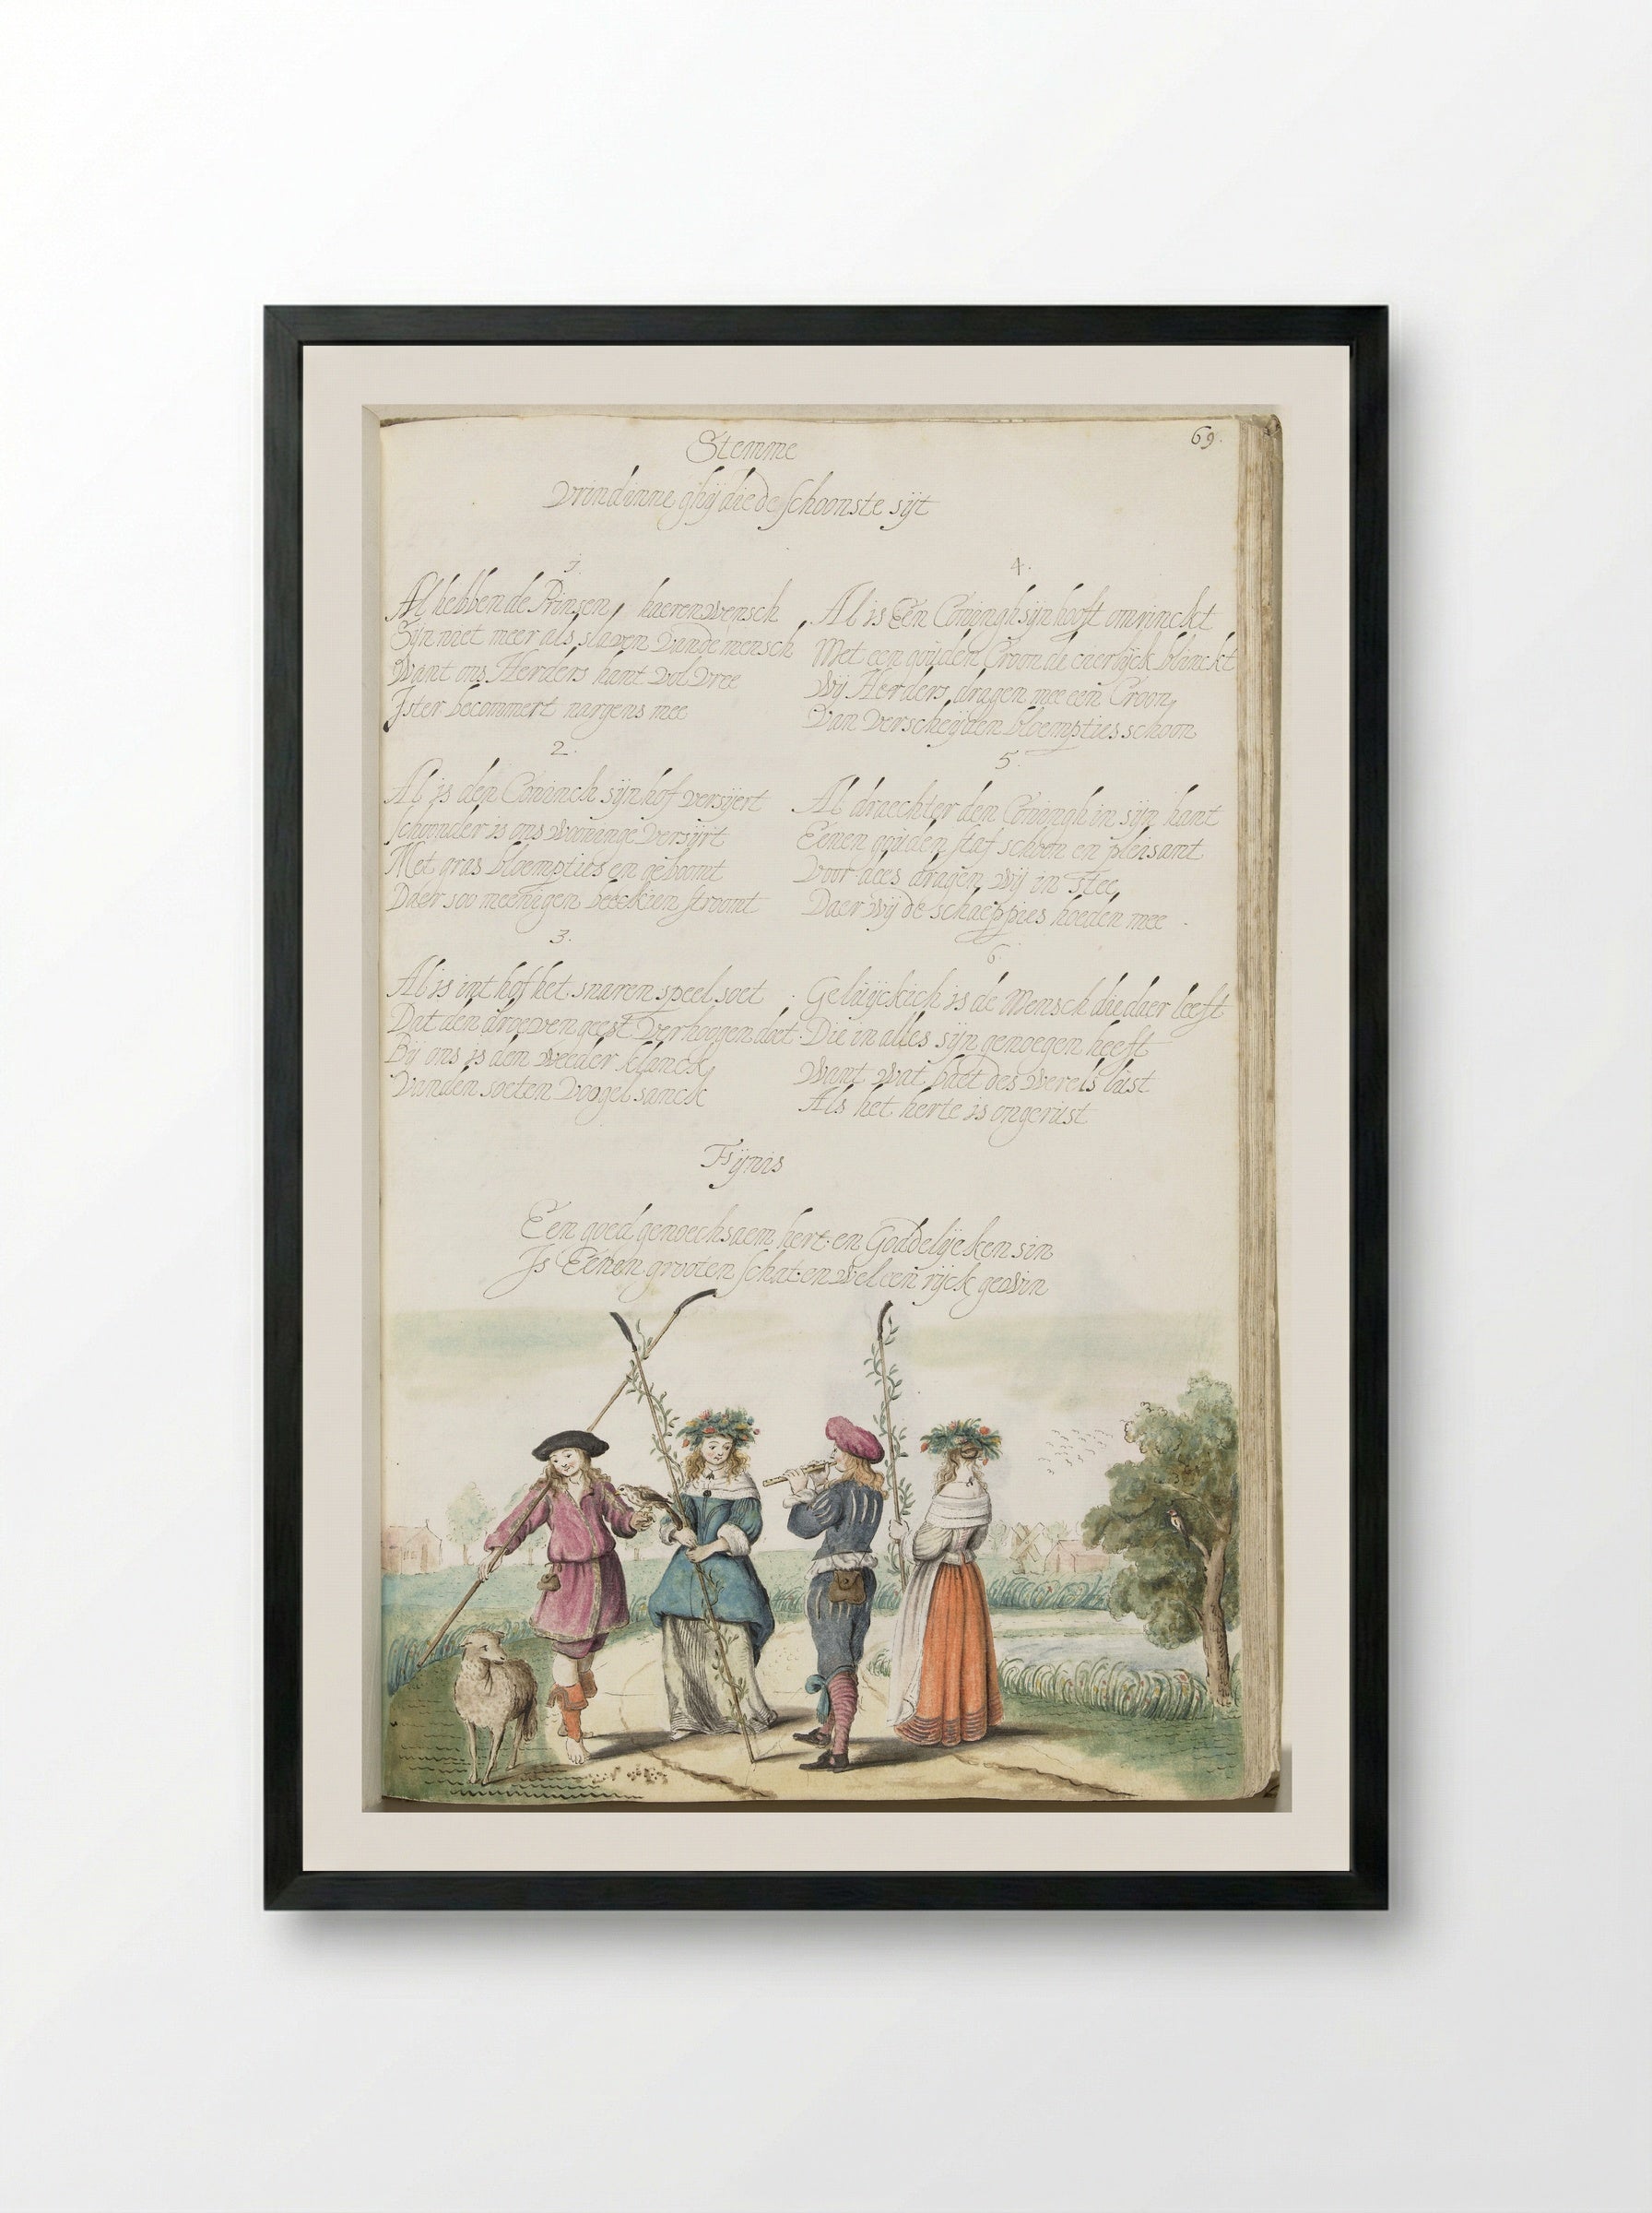 69.
Stemme
Vrindinne ghij die de schoonste sijt
1
Al hebben de Prinsen haeren wensch
Sijn niet meer als slaven vande mensch
Want ons Herders hant vol vree
Ister becommert nargens mee
2.
Al is den Coninck sijn hof versijert
Schoonder is ons wooninge versijrt
Met gras bloempties en geboomt
Daer soo meenigen beeckien stroomt
3.
Al is int hof het snaren speel soet
Dat den droeven geest verhoogen doet
Bij ons is den weeder klanck
Vanden soeten voogel sanck
4.
Al is Een Coningh sijn hooft omrinckt
Met een gouden Croon de cierlijck blinckt
Wij Herders dragen mee een Croon
Van verscheijden bloempties schoon
5.
Al draechter den Coningh in sijn hant
Eenen gouden staf schoon en pleisant
Voor dees dragen wij in stee
Daer wij de schaeppies hoeden mee
6.
Geluijckich is de Mensch die daer leeft
Die in alles sijn genoegen heeft
Want wat baet des werels lust
Als het herte is ongerust
Fijnis
Een goed genoechsaem hert en Goddelijcken sin
Is Eenen grooten schat en wel een rijck gewin